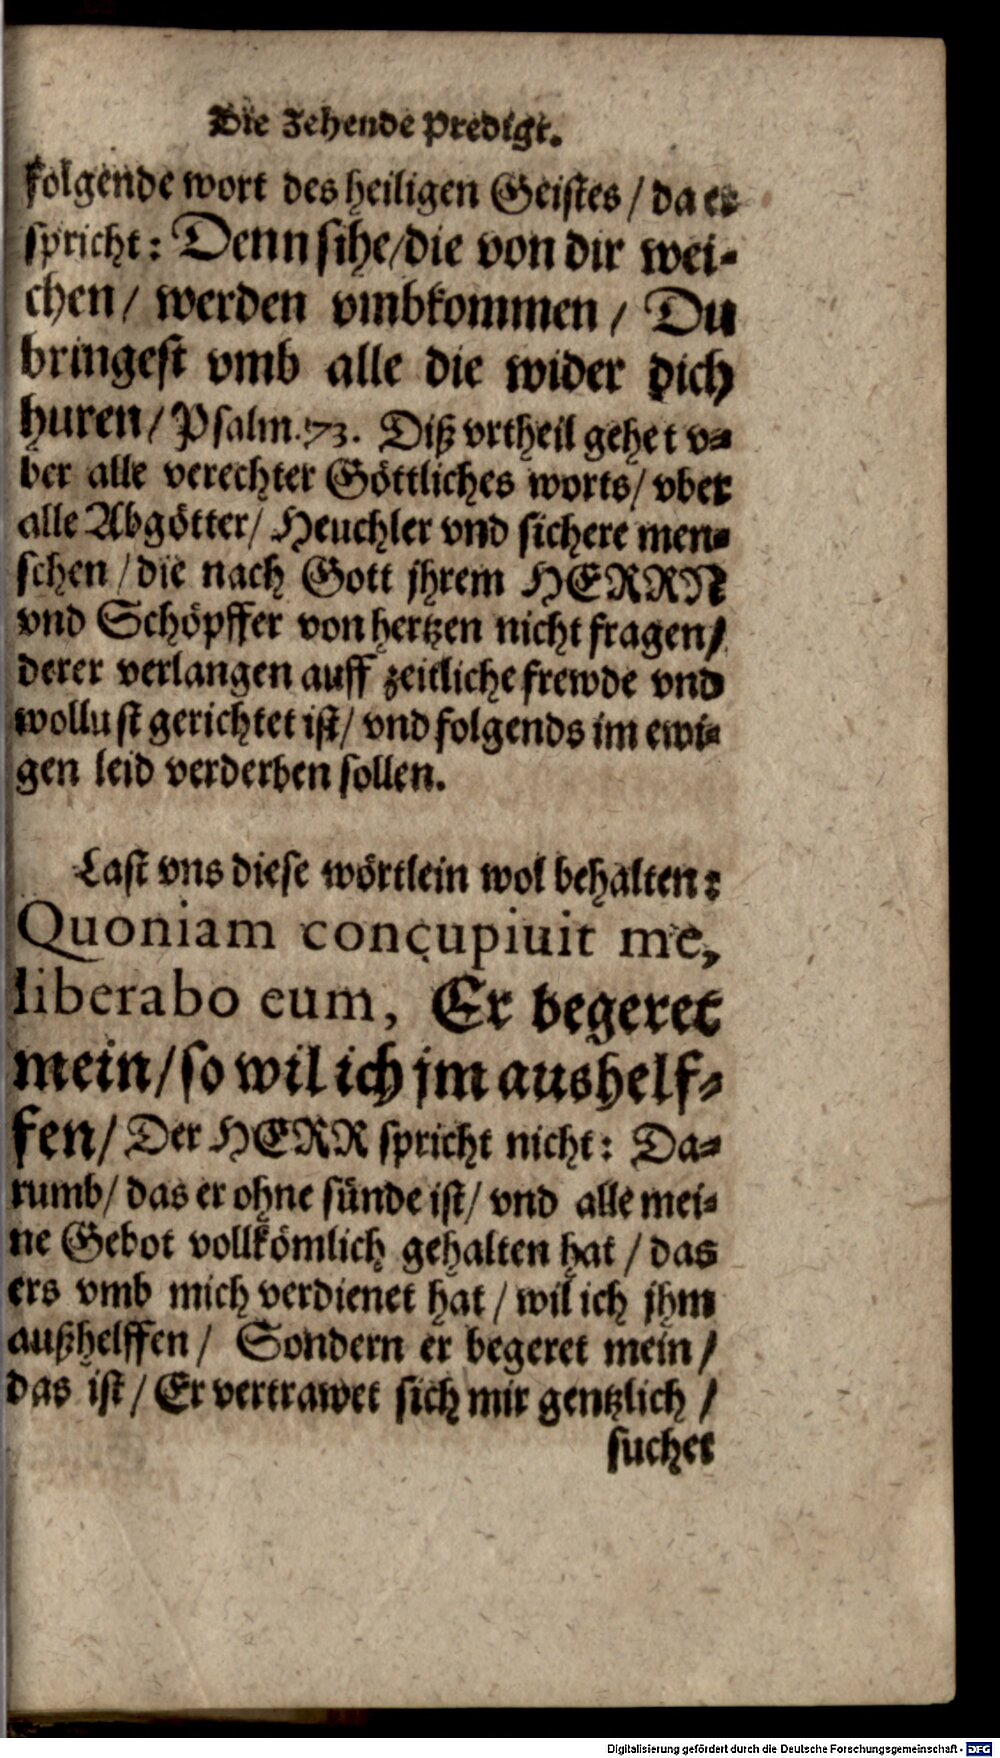 Die Zehende Predigt.
folgende wort des heiligen Geistes / da er
spricht: Denn sihe/die von dir wei-
chen/ werden vmbkommen / Du
bringest vmb alle die wider dich
huren/ Psalm.73. Diß vrtheil gehet v-
ber alle verechter Göttliches worts/ vber
alle Abgötter/ Heuchler vnd sichere men-
schen / die nach Gott jhrem HERRN
vnd Schöpffer von hertzen nicht fragen/
derer verlangen auff zeitliche frewde vnd
wollust gerichtet ist/ vnd folgends im ewi-
gen leid verderben sollen.
Last vns diese wörtlein wol behalten:
Quoniam concupiuit me,
liberabo eum, Er begeret
mein/so wil ich jm aushelf-
fen/ Der HERR spricht nicht: Da-
rumb/ das er ohne sünde ist/ vnd alle mei-
ne Gebot vollkömlich gehalten hat / das
ers vmb mich verdienet hat / wil ich jhm
außhelffen / Sondern er begeret mein /
das ist / Er vertrawet sich mir gentzlich /
suchet
Digitalisierung gefördert durch die Deutsche Forschungsgemeinschaft - DFG